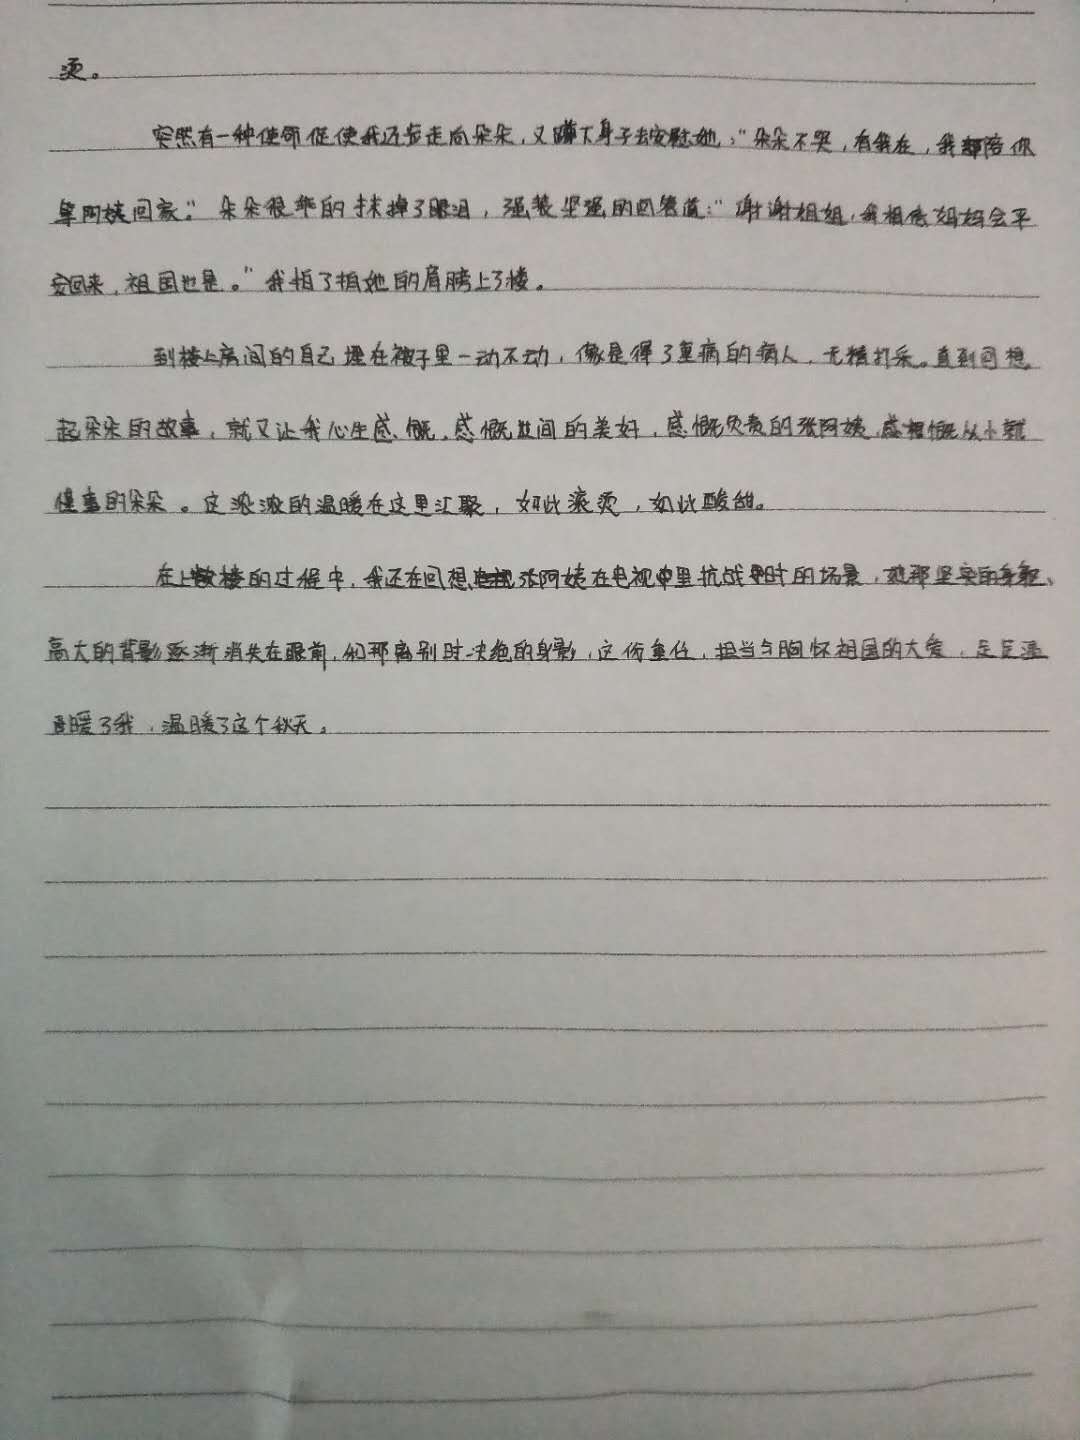 烫。
突然有一种使命促使我迈步走向朵朵，又蹲下身子去安慰她：“朵朵不哭，有我在，我陪你
等阿姨回家。”朵朵很乖的抹掉了眼泪，强装坚强的回答道：“谢谢姐姐，我相信妈妈会平
安回来，祖国也是。”我拍了拍她的肩膀上了楼。
到楼上房间的自己埋在被子里一动不动，像是得了重病的病人，无精打采。直到回想
起朵朵的故事，就又让我心生感慨，感慨世间的美好，感慨负责的张阿姨，感慨从小就
懂事的朵朵。这浓浓的温暖在这里汇聚，如此滚烫，如此酸甜。
在上楼的过程中，我还在回想张阿姨在电视里抗战时的场景，她那坚实的身躯、
高大的背影逐渐消失在眼前，们那离别时决绝的身影，这份重任，担当与胸怀祖国的大爱，足足温
暖了我，温暖了这个秋天。